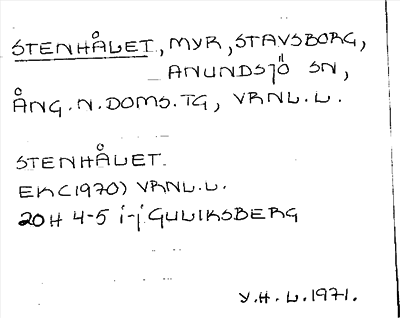 STENHÅLET, MYR, STAVSBORG,
ANUNDSJÖ SN,
ÅNG.N.DOMS.TG, VRNL.L.
STENHÅLET.
EK(1970) VRNL.L.
20H 4-5 i-j GULIKSBERG
Y.H.L.1971.